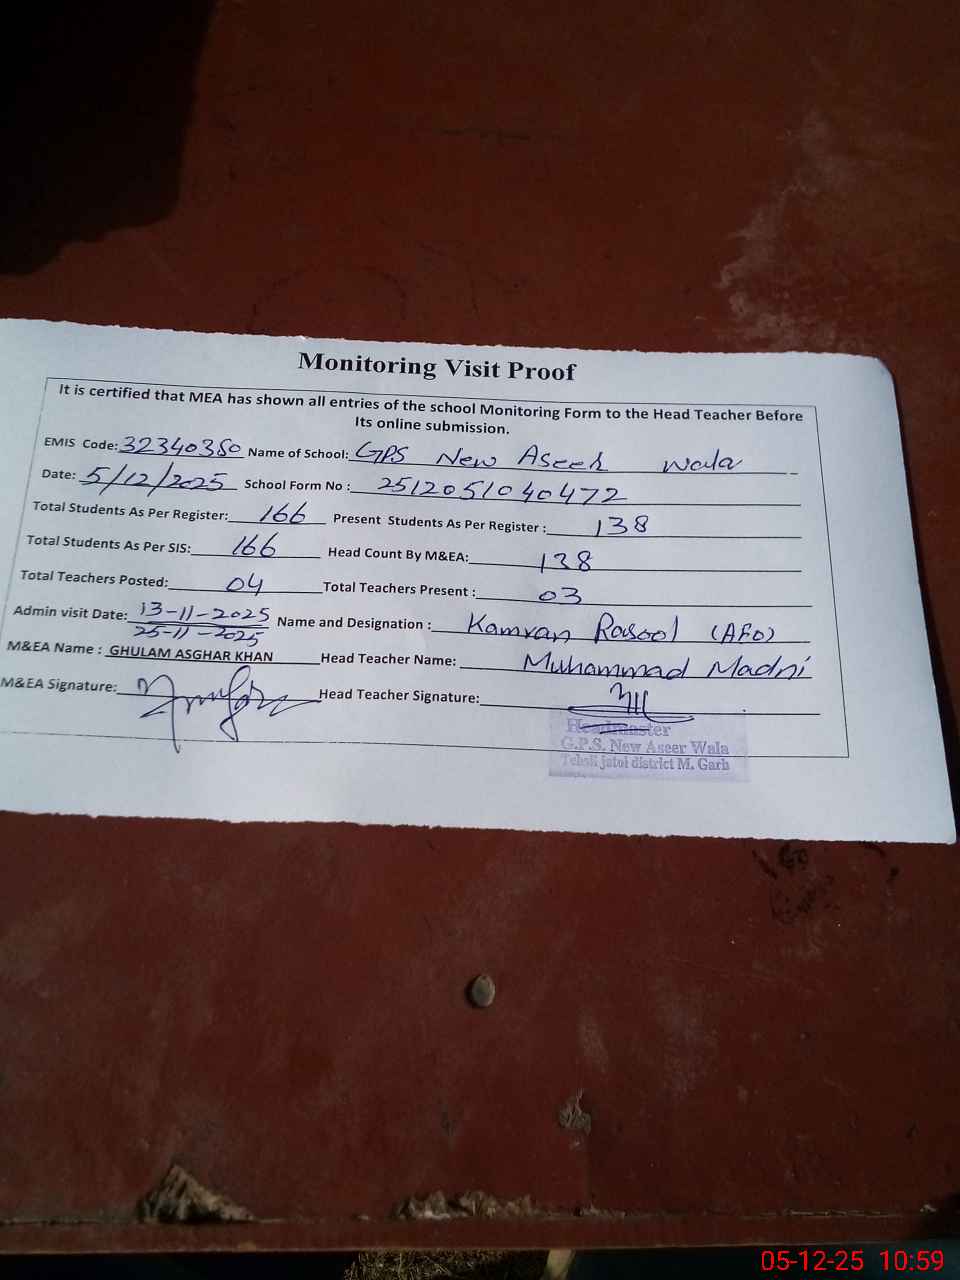 Monitoring Visit Proof
It is certified that MEA has shown all entries of the school Monitoring Form to the Head Teacher Before
Its online submission.
EMIS Code: 32340350 Name of School: GPS New Aseer Wala
Date: 5/12/2025 School Form No : 2512051040472
Total Students As Per Register: 166 Present Students As Per Register : 138
Total Students As Per SIS: 166 Head Count By M&EA: 138
Total Teachers Posted: 04 Total Teachers Present : 03
Admin visit Date: 13-11-2025 Name and Designation : Kamran Rasool (AEO)
25-11-2025
M&EA Name : GHULAM ASGHAR KHAN Head Teacher Name: Muhammad Madni
M&EA Signature: Head Teacher Signature:
Headmaster
G.P.S. New Aseer Wala
Tehsil jatoi district M. Garh
05-12-25 10:59